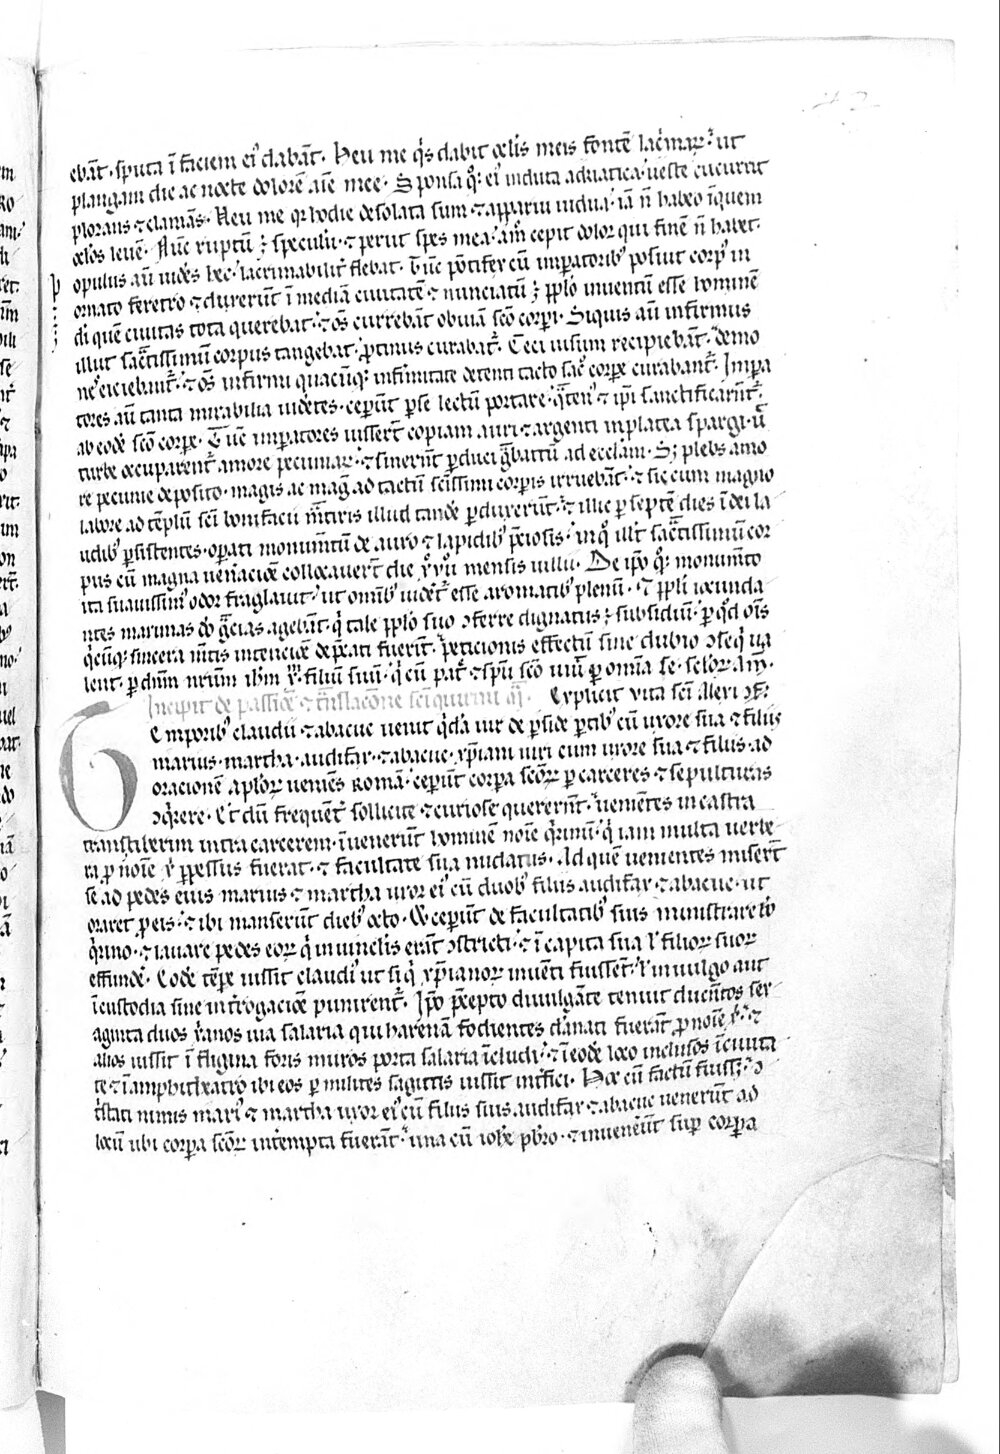 ebāt · sputa ī faciem eiꝰ dabāt · Heu me qͥs dabit oclīs meis fontē lacͥmaꝝ · ut
plangam die ac nocte dolorē aīe mee · Sponsa qͦqꝫ eiꝰ induta adriatica ueste cucurrit
plorans ⁊ clamās · Heu me qꝛ hodie desolata sum ⁊ apparui uidua · iā n̄ habeo ī quem
oclos leuē · Nūc ruptū ꝫ speculū · ⁊ periit spes mea · am̄ cepit dolor qui finē n̄ habet ·
opulus aūt uidēs hec lacrimabilit̾ flebat · Tūc pōtifex cū imꝑatoribꝰ posuit corpꝰ in
ornato feretro ⁊ duxerūt ī mediā ciuitatē ⁊ nunciatū ꝫ ppl̄o inuentū esse hominē
dī quē ciuitas tota querebat · ⁊ oēs currebāt obuiā sc̄o corpi · Siquis aūt infirmus
illut sacͣtissimū corpus tangebat · ꝓtinus curabat̾ · Ceci uisum recipiebāt · demo
nes eiciebant̾ · ⁊ oēs infirmi quacūqꝫ infirmitate detenti tacto sac̾ corpe curabant̾ · Imꝑa
tores aūt tanta mirabilia uidētes · ceperūt ꝑ se lectū portare · qͣtenꝰ ⁊ ip̄i sanctificarent̾
ab eodē sc̄o corpe · Tūc imꝑatores iusserūt copiam auri ⁊ argenti in platea spargi · ut
turbe occuparent̾ amore pecuniaꝝ · ⁊ sinerēnt ꝑduci gͣbattū ad eccl̄am · Sꝫ plebs amo
re pecunie deposito · magis ac magꝭ ad tactū sc̄issimi corpis irruebāt · ⁊ sic cum magno
labore ad tēplū sc̄i bonifacii m̄tiris illud tandē ꝑduxerūt · ⁊ illic ꝑ septē dies ī dei la
udibꝰ ꝑsistentes · opati monum̄tū de auro ⁊ lapidibꝰ p̄ciosis · in qͦ illt sacͣtissimū cor
pus cū magna uen̾acioē collocauerūt die xͦvͦiiͦ mensis iulii · De ip̄o qͦqꝫ monum̄to
ita suauissimꝰ odor fraglauit · ut omībꝰ uidet̾ esse aromatibꝰ plenū · ⁊ ppl̄i iocunda
ntes maximas dō gͣcias agebāt · qͥ tale ppl̄o suo ꝯferre dignatus ꝫ subsidiū · ꝑ qͦd oīs
qͥcūqꝫ sincera m̄tis intencioē dep̄cati fuerit · peticionis effectū sine dubio ꝯseqͣ ua
lent · ꝑ dn̄m nr̄um ihm̄ xp̄m filium suū · qͥ cū pat̾ ⁊ sp̄u sc̄o uiuit ꝑ omīa sc̄lā scl̄oꝝ am̄ ·
Incipit de passioē ⁊ tͣnslacōne Explicit vita sc̄i Alexi ꝯf̄ ·
Tēmporibꝰ claudii ⁊ abacuc uenit qͥdā uir de ꝑside ꝑtibꝰ cū uxore sua ⁊ filiis
marius · martha · audifax · ⁊ abacuc · xp̄iani uiri cum uxore sua ⁊ filiis · ad
oracionē apl̄oꝝ ueniēs Romā · ceperūt corpa sc̄oꝝ ꝑ carceres ⁊ sepulturas
ꝯqͥrere · Et dū frequent̾ sollicite ⁊ curiose quererēnt · ueniētes in castra
transtiberim intra carcerem · īuenerūt hominē noīe qͥrinū · qͥ iam multa uerbe
ra ꝓ noīe xͥ ꝑpessus fuerat · ⁊ facultate sua nudatus · Ad quē uenientes miserūt
se ad pedes eius marius ⁊ martha uxor eiꝰ cū duobꝰ filiis audifax ⁊ abacuc · ut
oraret ꝓ eis · ⁊ ibi manserūt diebꝰ octo · Et ceperūt de facultatibꝰ suis ministrare bō
qͥrino · ⁊ lauare pedes eoꝝ qͥ in uinclis erāt ꝯstricti · ⁊ ī capita sua ꝉ filioꝝ suoꝝ
effundē · Eodē tēpe iussit claudiꝰ ut siqͥ xp̄ianoꝝ inuenti fuissent · ꝉ in uulgo aut
īcustodia sine int̾rogacioē punirent̾ · Ip̄o p̄cepto diuulgāte tenuit ducētos sex
aginta duos xͥanos uia salaria qui harenā fodientes dānati fuerāt ꝓ noīe xͥ · ⁊
alios iussit ī fligina foris muros porta salaria īcludi · ⁊ ī eodē loco inclusos ī ciuita
te ⁊ ī amphitheatro ibi eos ꝑ milites sagittis iussit int̾fici · Hoc cū factū fuissꝫ · ꝯ
t̾stati nimis mariꝰ ⁊ martha uxor eiꝰ cū filiis suis audifax ⁊ abacuc uenerūt ad
locū ubi corpa sc̄oꝝ int̾empta fuerāt · una cū ioh̄e pb̄ro · ⁊ inuenerūt suꝑ corpa